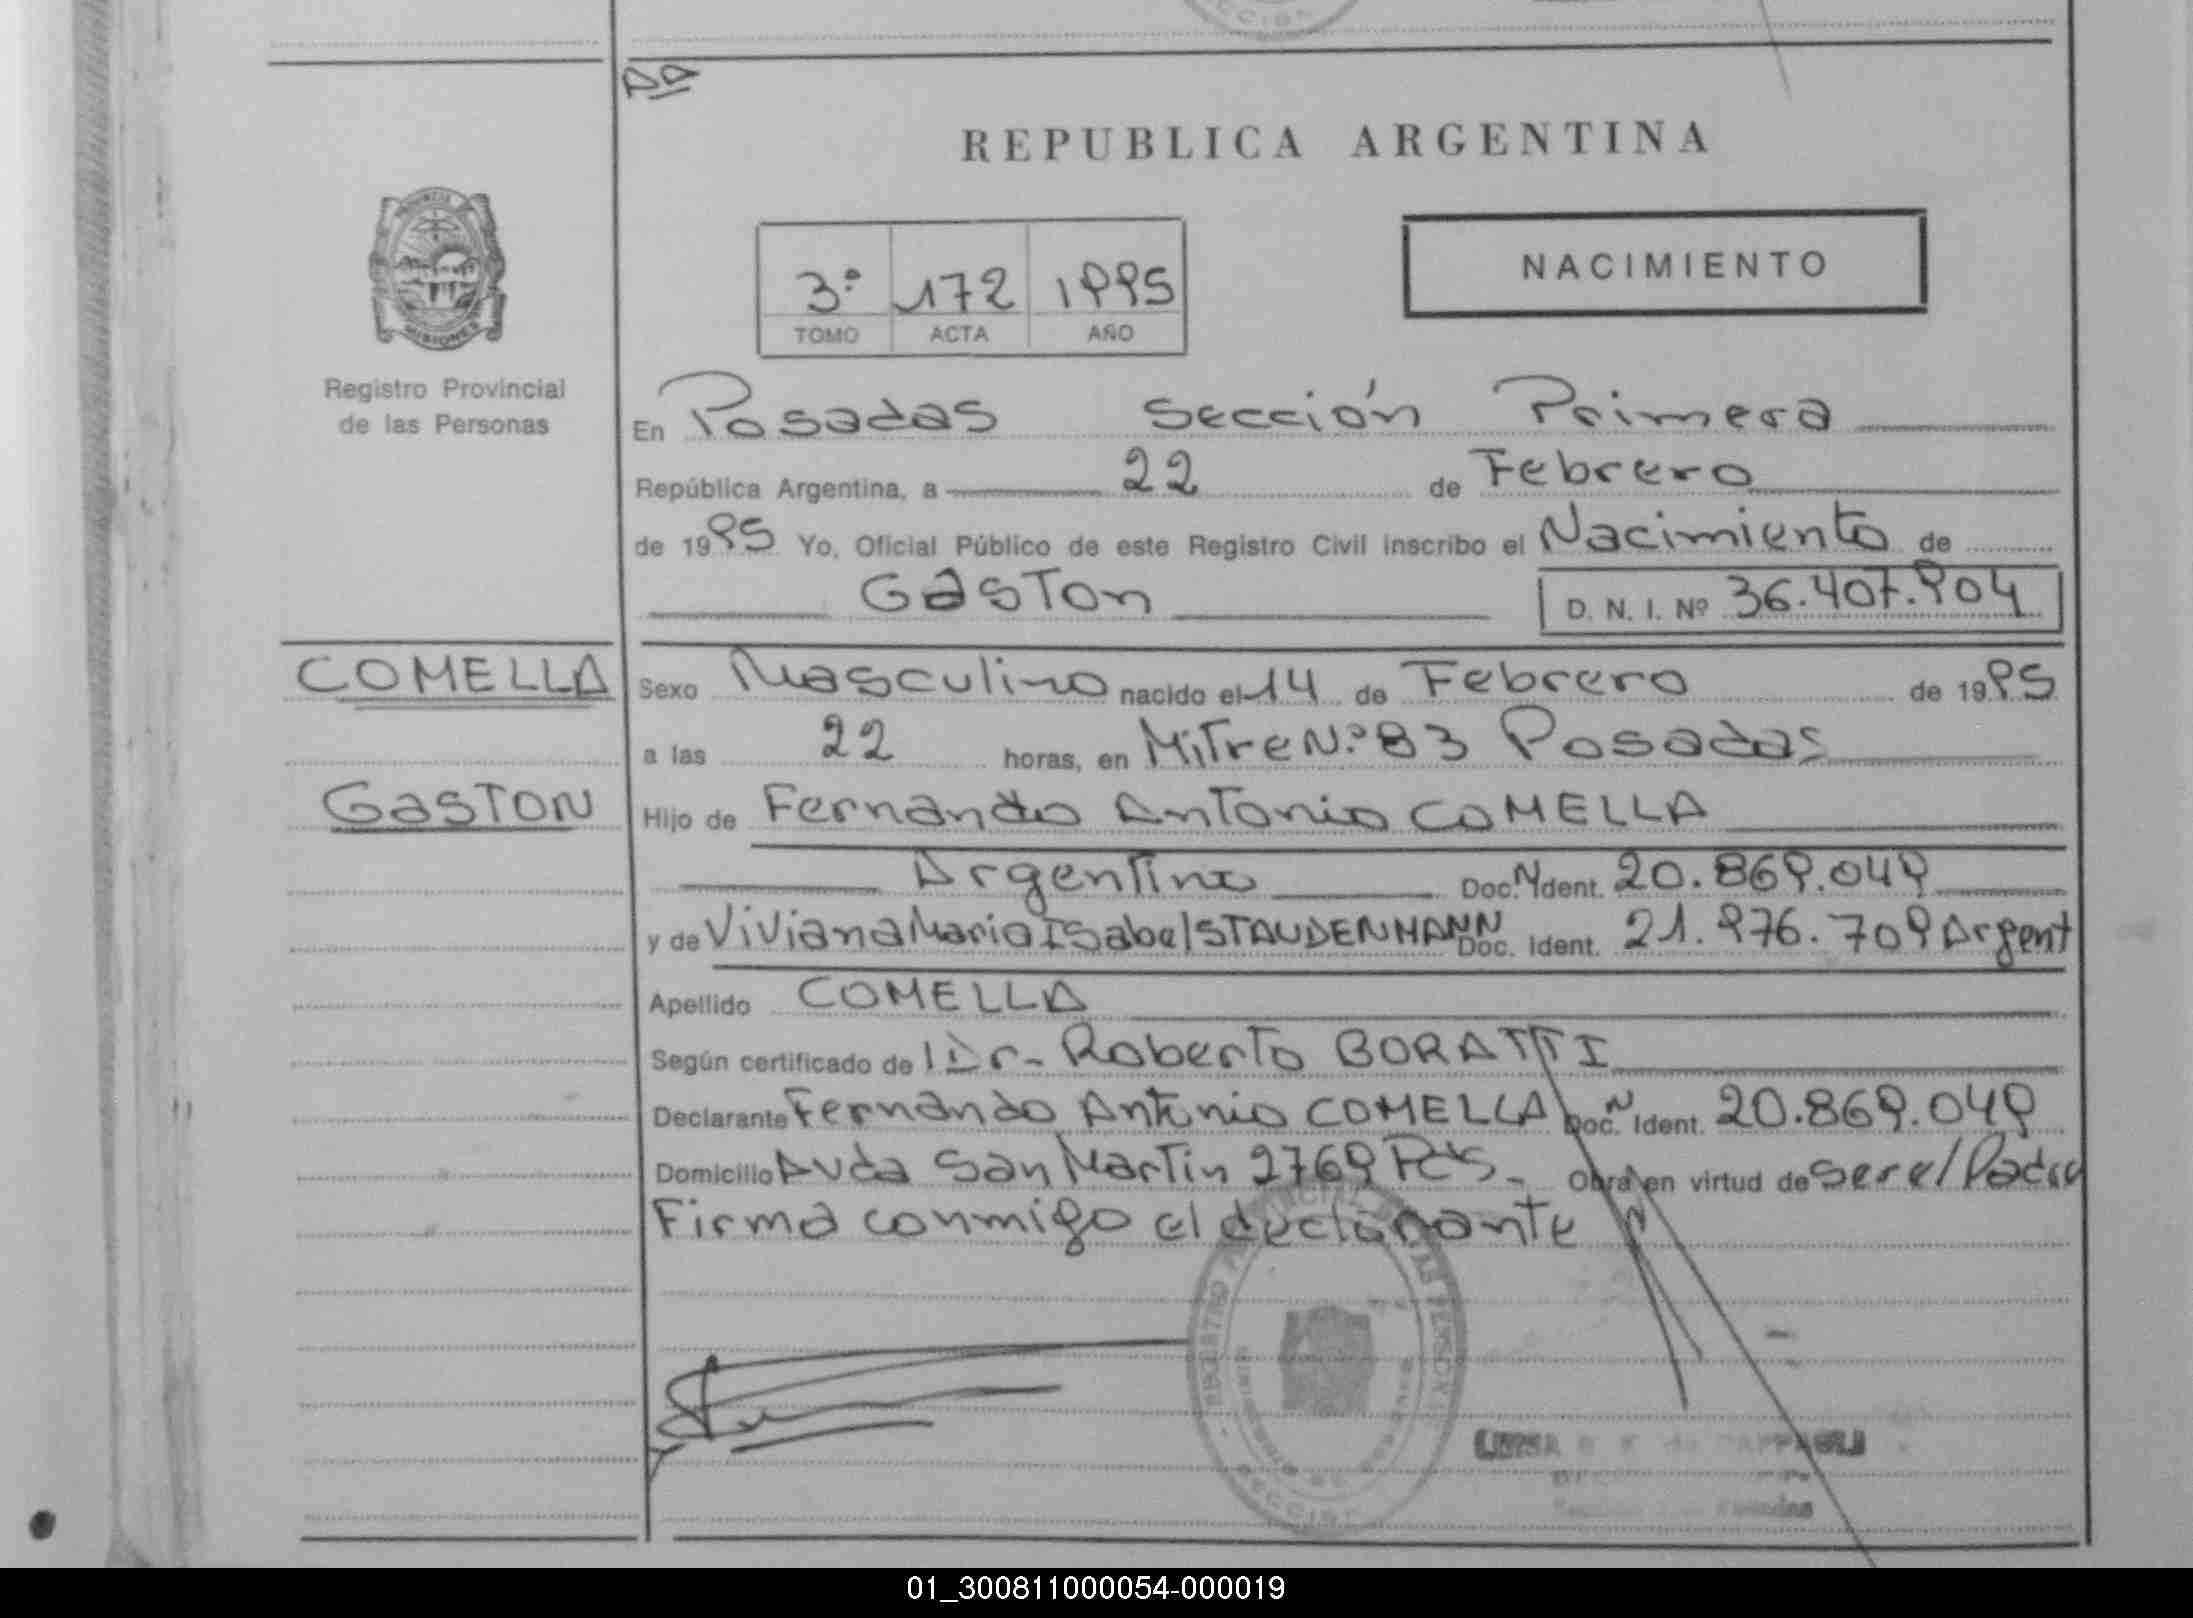 REPUBLICA ARGENTINA
3º 172 1995
TOMO ACTA AÑO
NACIMIENTO
MISIONES
Registro Provincial
de las Personas
En Posadas Sección Primera
República Argentina, a 22 de Febrero
de 1995 Yo, Oficial Público de este Registro Civil inscribo el Nacimiento de
Gaston D. N. I. Nº 36.407.904
COMELLA
Sexo Masculino nacido el 14 de Febrero de 1995
a las 22 horas, en Mitre N.º 83 Posadas
GASTON
Hijo de Fernando Antonio COMELLA
Argentino Doc. N Ident. 20.869.049
y de Viviana Maria Isabel STAUDENMANN Doc. Ident. 21.976.709 Argent
Apellido COMELLA
Según certificado de Dr- Roberto BORATTI
Declarante Fernando Antonio COMELLA Doc. N Ident. 20.869.049
Domicilio Avda San Martin 2769 Pds- Obra en virtud de ser el Padre
Firma conmigo el declarante
01_300811000054-000019